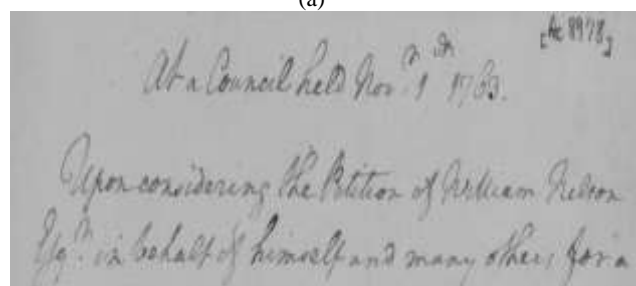 (a)
[Ac 8978]
At a Council held Nov.r 1st 1763.
Upon considering the Petition of William Nelson
Esq.r in behalf of himself and many others for a